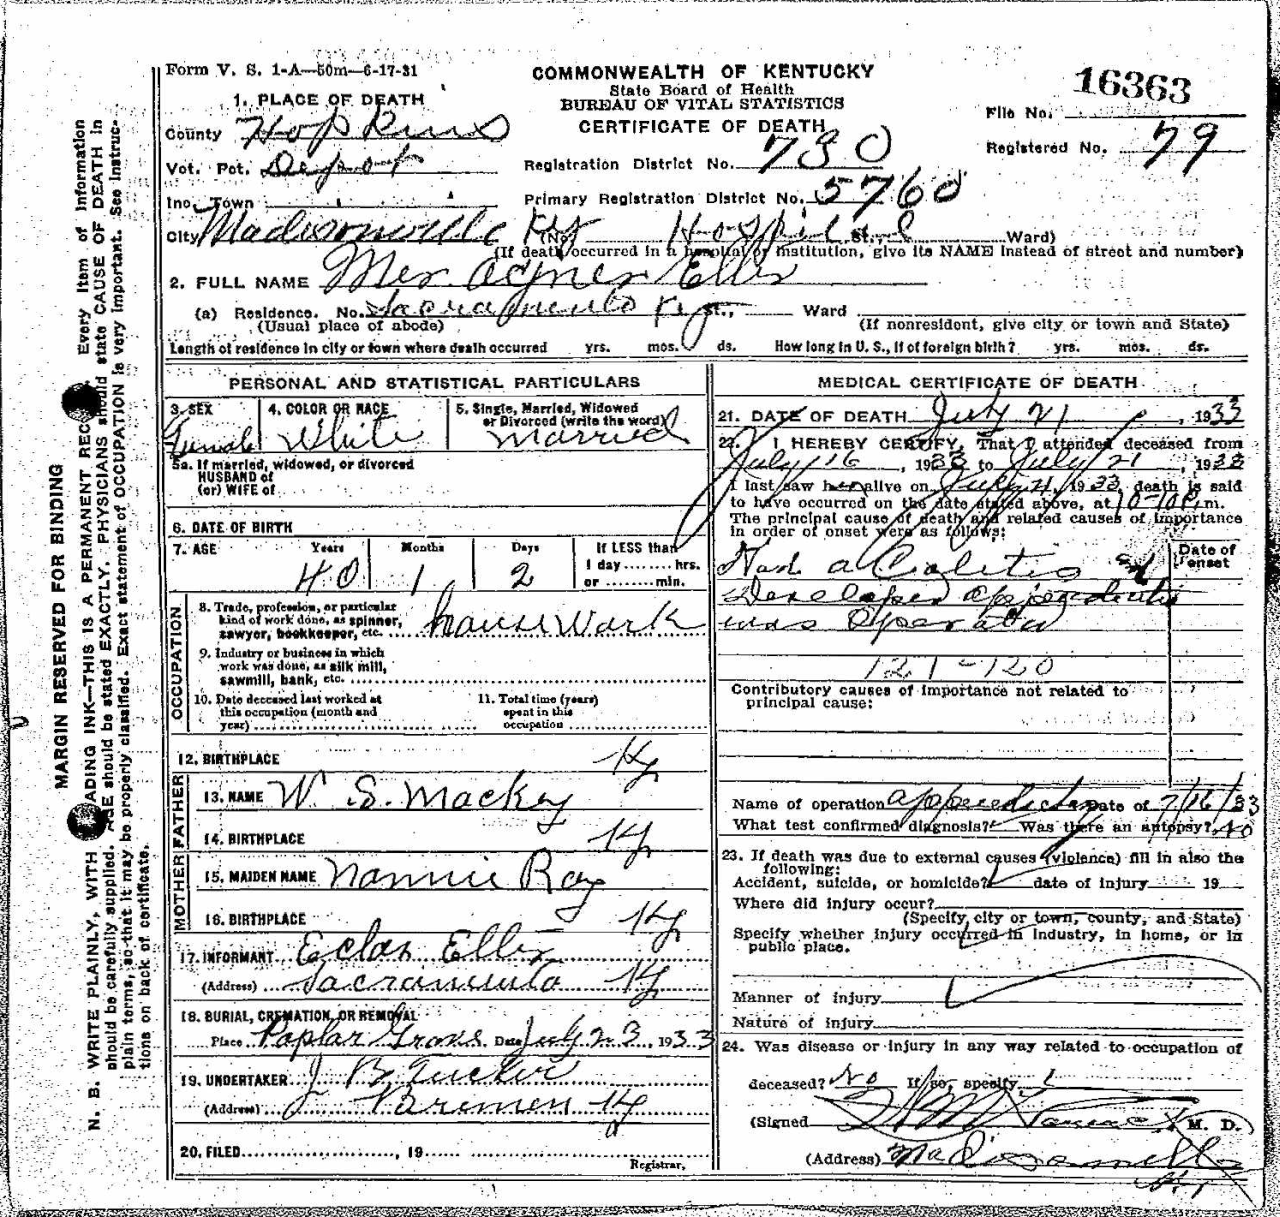 Form V. S. 1-A—50m—6-17-31
COMMONWEALTH OF KENTUCKY
State Board of Health
BUREAU OF VITAL STATISTICS
CERTIFICATE OF DEATH
File No. 16363
Registered No. 79
1. PLACE OF DEATH
County Hopkins
Vot. Pct. Depot
Registration District No. 730
Inc. Town
Primary Registration District No. 5760
City Madisonville Ky (No. Hospital St., Ward)
(If death occurred in a hospital or institution, give its NAME instead of street and number)
2. FULL NAME Mrs. Agnes Ellis
(a) Residence. No. Sacramento Ky St., Ward
(Usual place of abode) (If nonresident, give city or town and State)
Length of residence in city or town where death occurred yrs. mos. ds. How long in U. S., if of foreign birth? yrs. mos. ds.
PERSONAL AND STATISTICAL PARTICULARS
3. SEX 4. COLOR OR RACE 5. Single, Married, Widowed
or Divorced (write the word)
Female White Married
5a. If married, widowed, or divorced
HUSBAND of
(or) WIFE of
6. DATE OF BIRTH
7. AGE Years Months Days If LESS than
1 day........hrs.
or ........min.
40 1 2
OCCUPATION
8. Trade, profession, or particular
kind of work done, as spinner,
sawyer, bookkeeper, etc. house work
9. Industry or business in which
work was done, as silk mill,
sawmill, bank, etc.
10. Date deceased last worked at
this occupation (month and
year)
11. Total time (years)
spent in this
occupation
12. BIRTHPLACE Ky
FATHER
13. NAME W. S. Mackey
14. BIRTHPLACE Ky
MOTHER
15. MAIDEN NAME Nannie Ray
16. BIRTHPLACE Ky
17. INFORMANT Eclas Ellis
(Address) Sacramento Ky
18. BURIAL, CREMATION, OR REMOVAL
Place Poplar Grove Date July 23 1933
19. UNDERTAKER J B Tucker
(Address) Bremen Ky
20. FILED , 19
Registrar.
MEDICAL CERTIFICATE OF DEATH
21. DATE OF DEATH July 21, 1933
22. I HEREBY CERTIFY, That I attended deceased from
July 16, 1933 to July 21, 1933
I last saw her alive on July 21, 1933 death is said
to have occurred on the date stated above, at 10-10 P.m.
The principal cause of death and related causes of importance
in order of onset were as follows:
Date of
onset
Had a Colitis and
Developed appendicitis
was Operated
121-120
Contributory causes of importance not related to
principal cause:
Name of operation appendectomy Date of 7/16/33
What test confirmed diagnosis? Was there an autopsy? No
23. If death was due to external causes (violence) fill in also the
following:
Accident, suicide, or homicide? date of injury 19
Where did injury occur?
(Specify, city or town, county, and State)
Specify whether injury occurred in industry, in home, or in
public place.
Manner of injury
Nature of injury
24. Was disease or injury in any way related to occupation of
deceased? No If so, specify
(Signed M. D.
(Address) Madisonville
Ky
MARGIN RESERVED FOR BINDING
N. B. WRITE PLAINLY, WITH ADING INK—THIS IS A PERMANENT REC Every item of information
should be carefully supplied. AGE should be stated EXACTLY. PHYSICIANS should state CAUSE OF DEATH in
plain terms, so that it may be properly classified. Exact statement of OCCUPATION is very important. See Instruc-
tions on back of certificate.